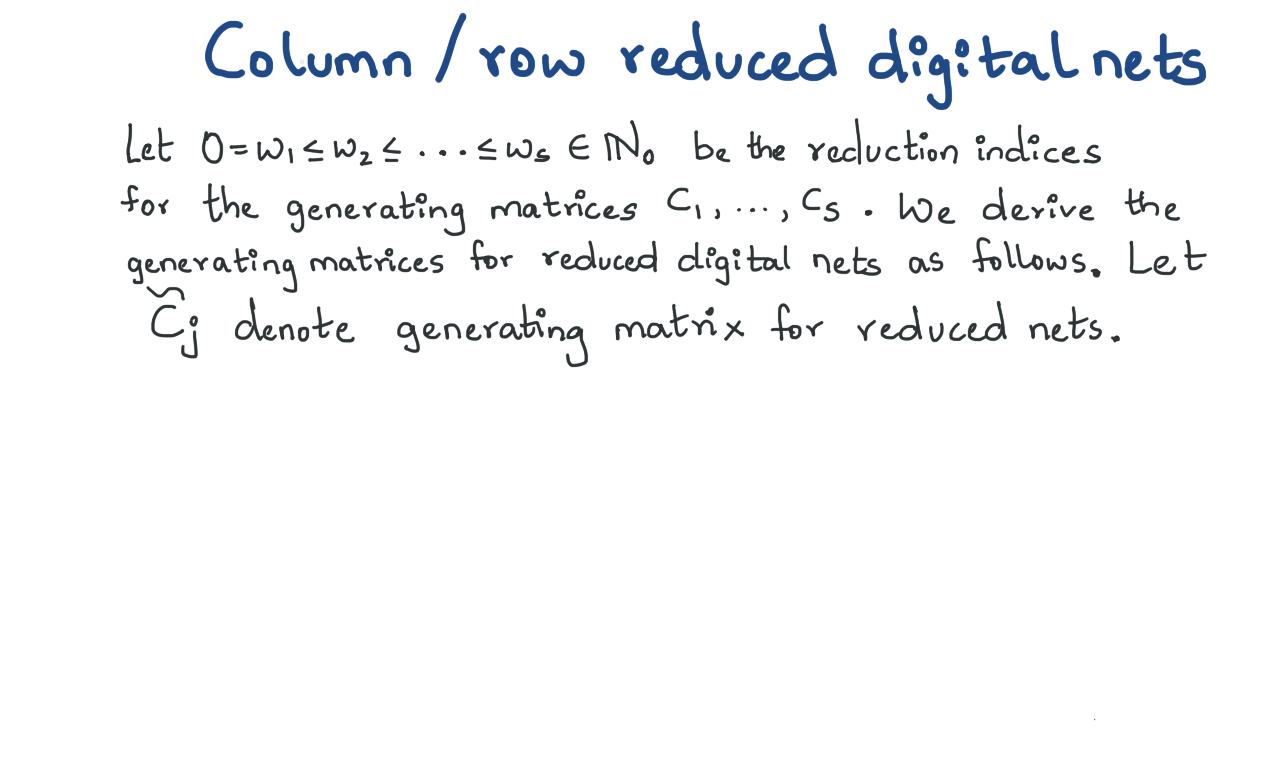 Column / row reduced digital nets
Let 0 = w₁ ≤ w₂ ≤ ... ≤ wₛ ∈ ℕ₀ be the reduction indices
for the generating matrices C₁, ..., Cₛ. We derive the
generating matrices for reduced digital nets as follows. Let
C̃ⱼ denote generating matrix for reduced nets.